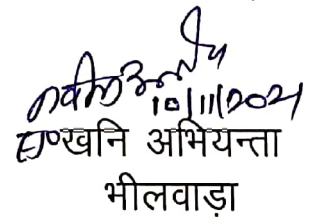 10/11/2021
खनि अभियन्ता
भीलवाड़ा